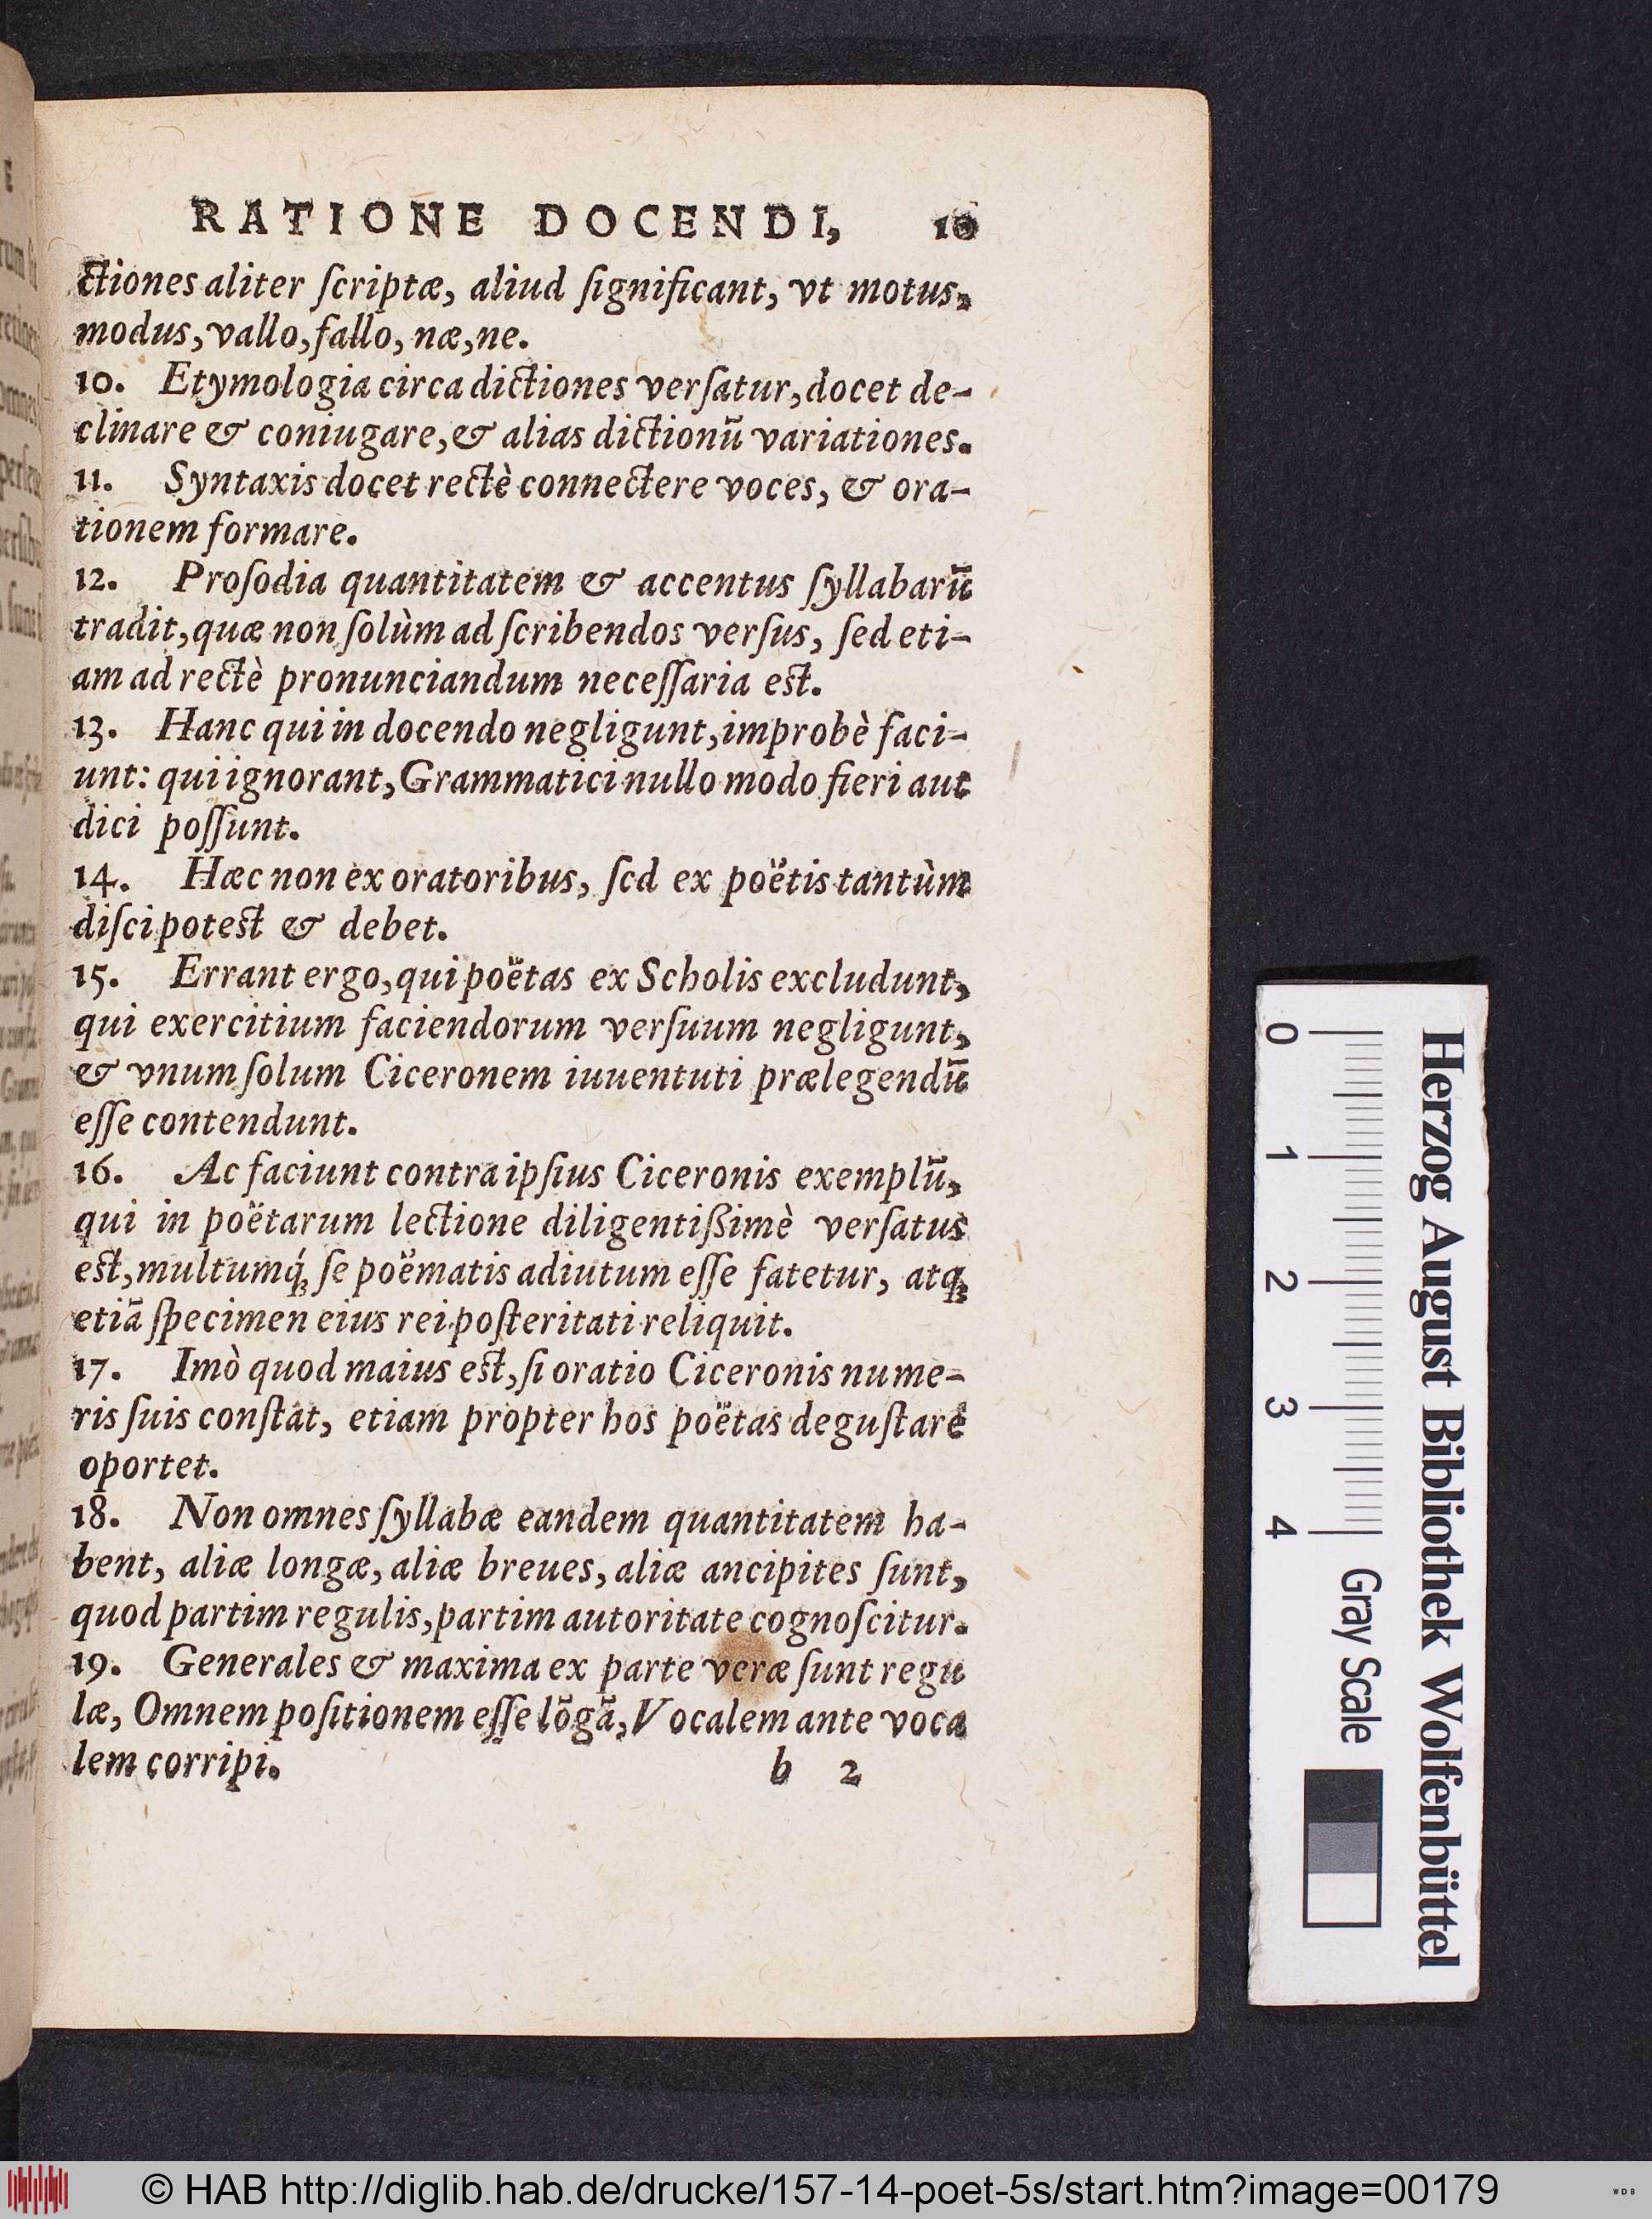 RATIONE DOCENDI, 10
ctiones aliter ſcriptæ, aliud ſignificant, vt motus,
modus, vallo, fallo, næ, ne.
10. Etymologia circa dictiones verſatur, docet de-
clinare & coniugare, & alias dictionū variationes.
11. Syntaxis docet rectè connectere voces, & ora-
tionem formare.
12. Proſodia quantitatem & accentus ſyllabarū
tradit, quæ non ſolùm ad ſcribendos verſus, ſed eti-
am ad rectè pronunciandum neceſſaria est.
13. Hanc qui in docendo negligunt, improbè faci-
unt: qui ignorant, Grammatici nullo modo fieri aut
dici poſſunt.
14. Hæc non ex oratoribus, ſed ex poëtis tantùm
diſci potest & debet.
15. Errant ergo, qui poëtas ex Scholis excludunt,
qui exercitium faciendorum verſuum negligunt,
& vnum ſolum Ciceronem iuuentuti prælegendū
eſſe contendunt.
16. Ac faciunt contra ipſius Ciceronis exemplū,
qui in poëtarum lectione diligentißimè verſatus
est, multumq́ꝫ ſe poëmatis adiutum eſſe fatetur, atqꝫ
etiā ſpecimen eius rei poſteritati reliquit.
17. Imò quod maius est, ſi oratio Ciceronis nume-
ris ſuis conſtat, etiam propter hos poëtas deguſtare
oportet.
18. Non omnes ſyllabæ eandem quantitatem ha-
bent, aliæ longæ, aliæ breues, aliæ ancipites ſunt,
quod partim regulis, partim autoritate cognoſcitur.
19. Generales & maxima ex parte veræ ſunt regu
læ, Omnem poſitionem eſſe lōgā, Vocalem ante voca
lem corripi.
b 2
Herzog August Bibliothek Wolfenbüttel
0 1 2 3 4 Gray Scale
© HAB http://diglib.hab.de/drucke/157-14-poet-5s/start.htm?image=00179
WDB